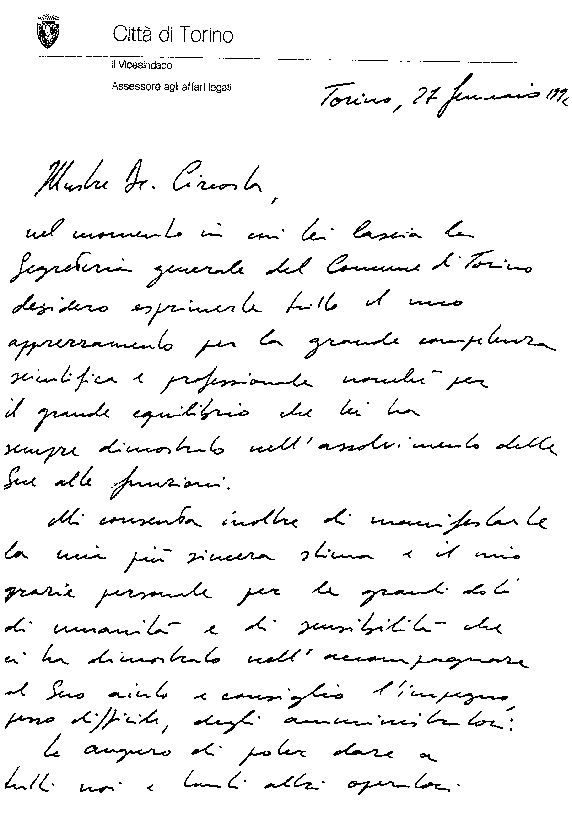 Città di Torino
il Vicesindaco
Assessore agli affari legali
Torino, 27 gennaio
Illustre Dr. Circosta,
nel momento in cui Lei lascia la
Segreteria generale del Comune di Torino
desidero esprimerle tutto il mio
apprezzamento per la grande competenza
scientifica e professionale nonché per
il grande equilibrio che Lei ha
sempre dimostrato nell'assolvimento delle
Sue alte funzioni.
Mi consenta inoltre di manifestarle
la mia più sincera stima e il mio
grazie personale per le grandi doti
di umanità e di sensibilità che
ci ha dimostrato nell'accompagnare
al Suo aiuto e consiglio l'impegno,
spesso difficile, degli amministratori.
Le auguro di poter dare a
tutti noi e tanti altri operatori